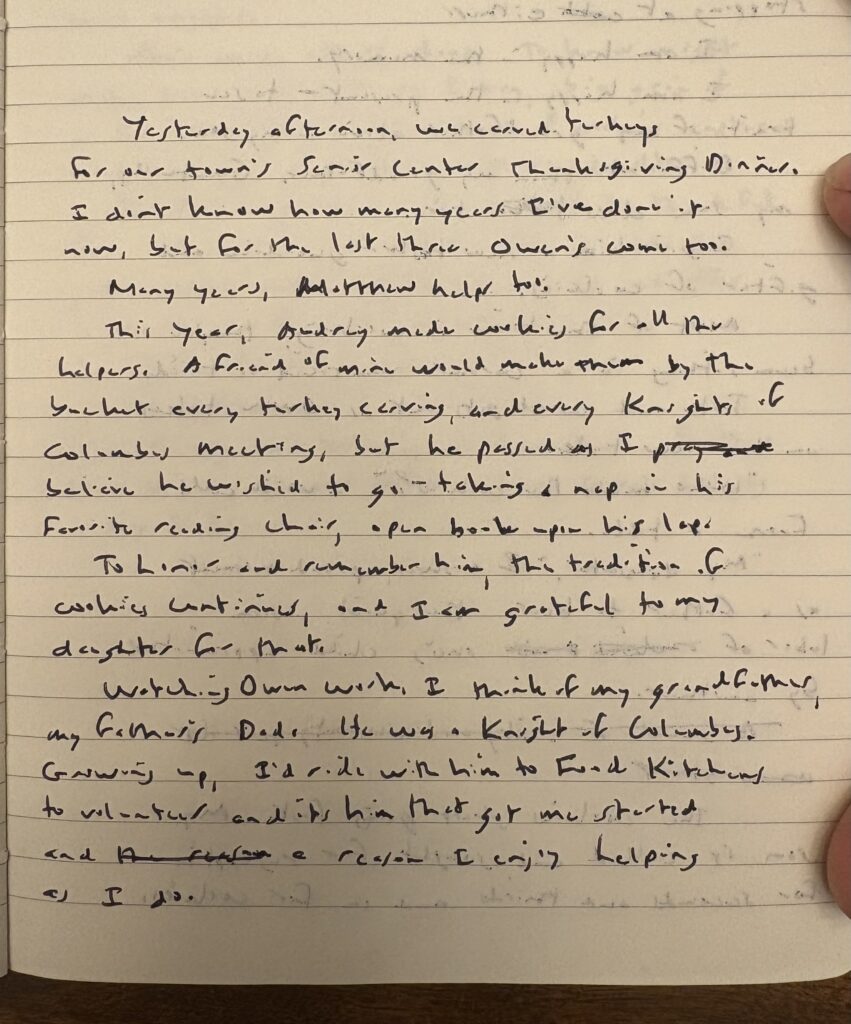 Yesterday afternoon, we carved turkeys
for our town's Senior Center Thanksgiving Dinner.
I don't know how many years I've done it
now, but for the last three Owen's come too.
Many years, Matthew helps too.
This year, Audrey made cookies for all the
helpers. A friend of mine would make them by the
bucket every turkey carving, and every Knights of
Columbus meeting, but he passed as I
believe he wished to go - taking a nap in his
favorite reading chair, open book upon his lap.
To honor and remember him, the tradition of
cookies continues, and I am grateful to my
daughter for that.
Watching Owen work, I think of my grandfather,
my father's Dad. He was a Knight of Columbus.
Growing up, I'd ride with him to Food Kitchens
to volunteer and its him that got me started
and the reason a reason I enjoy helping
as I do.